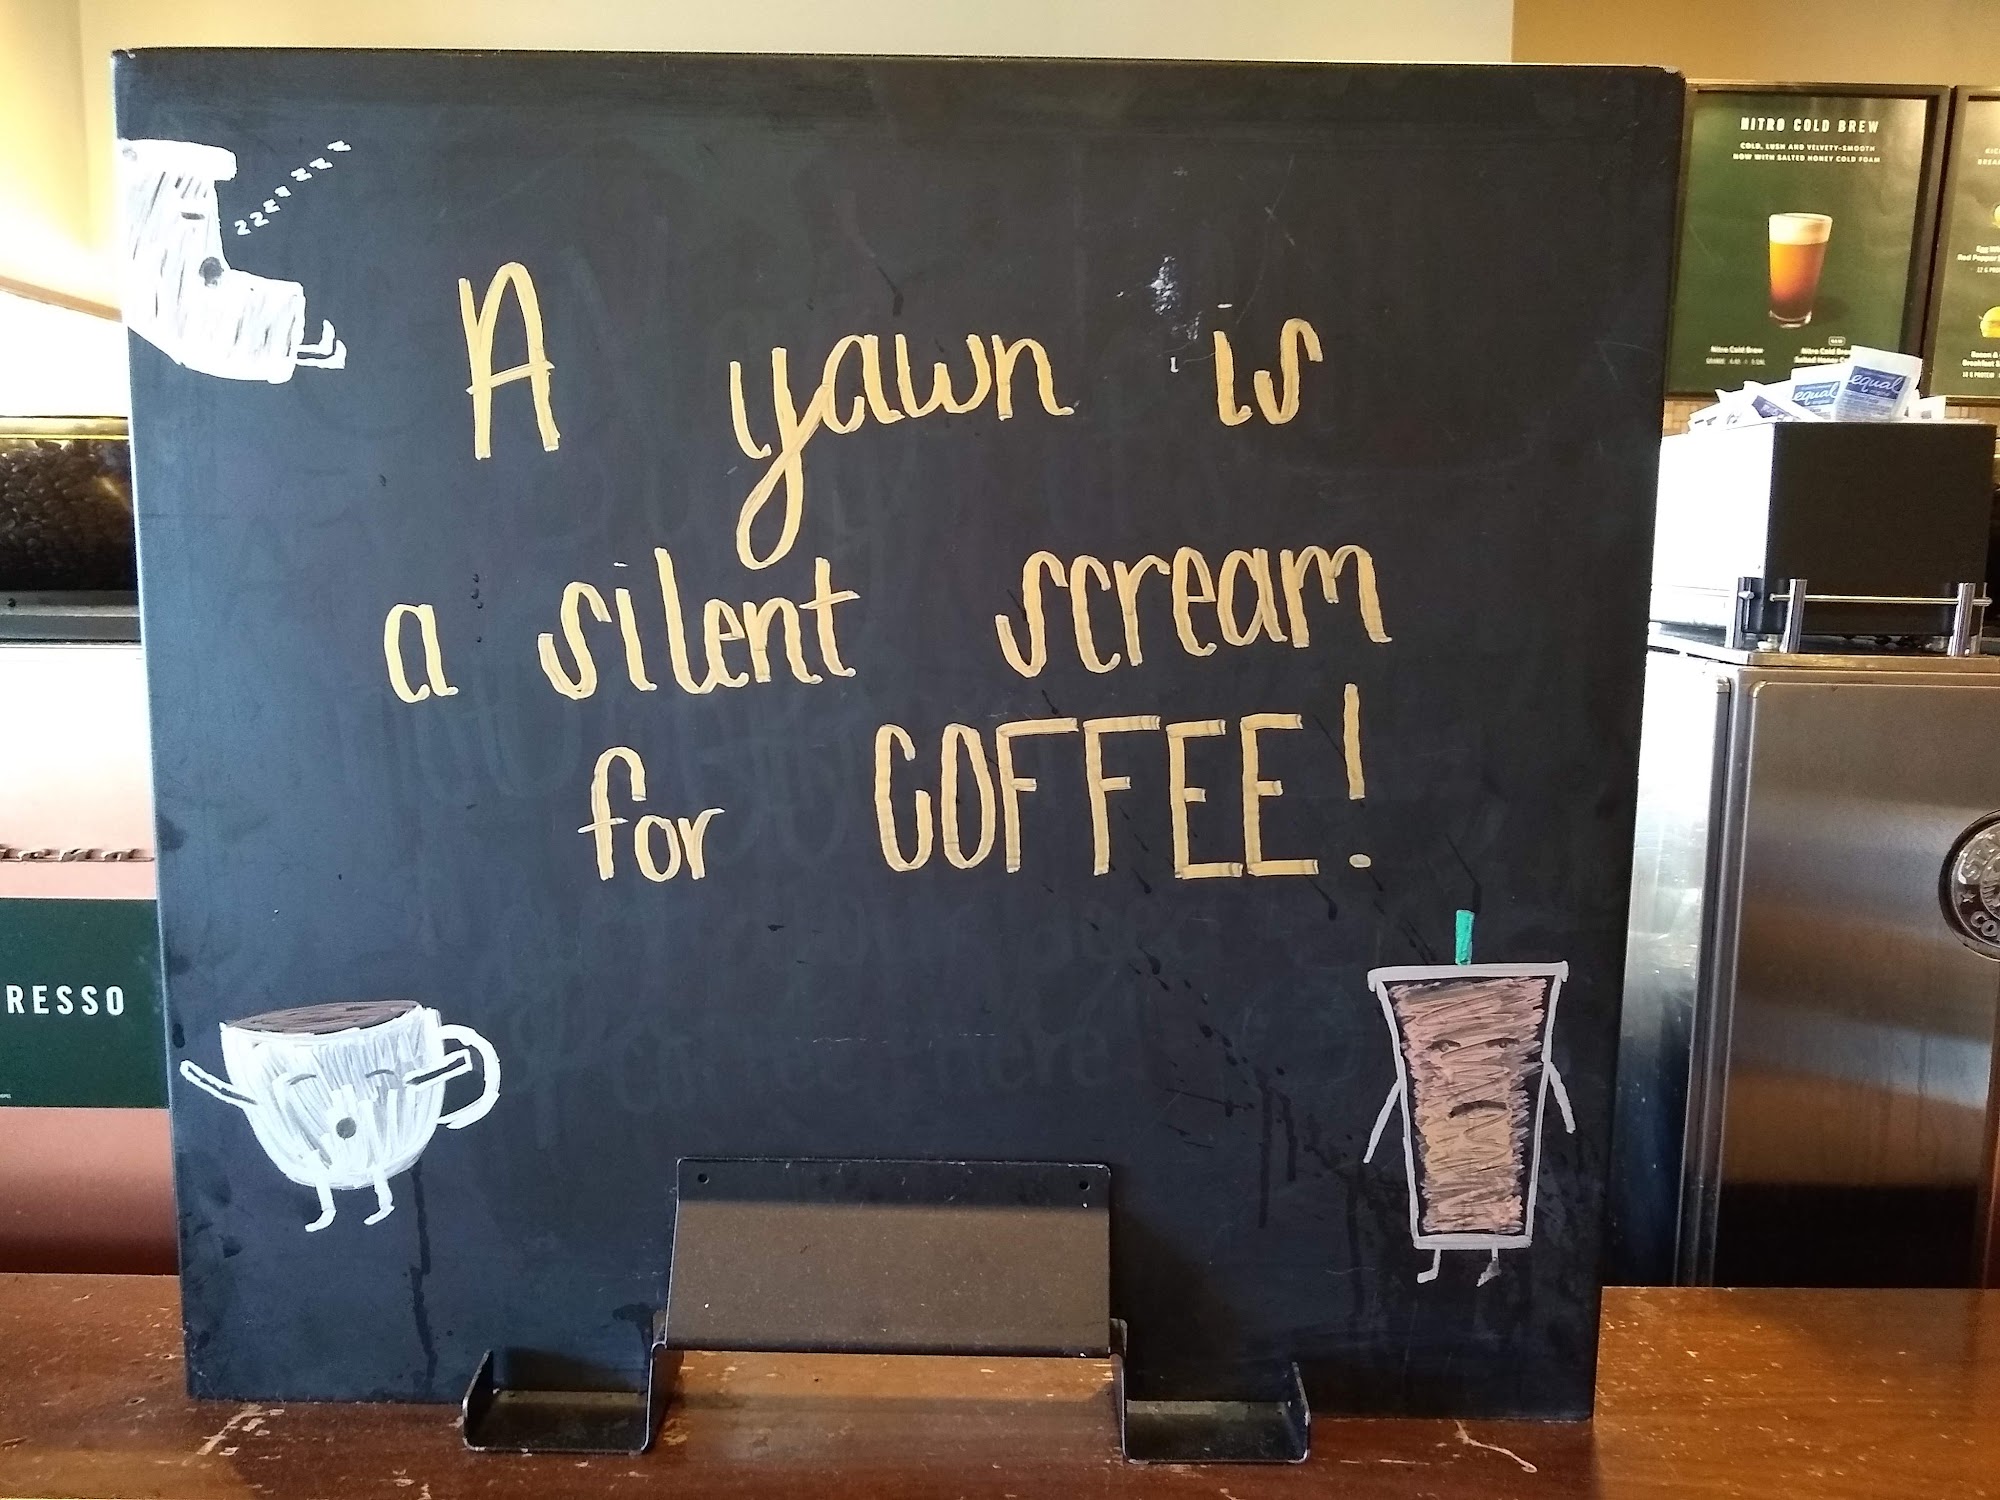 zzzzzzzz
A yawn is
a silent scream
for COFFEE!
NITRO COLD BREW
COLD, LUSH AND VELVETY-SMOOTH
NOW WITH SALTED HONEY COLD FOAM
Nitro Cold Brew
Nitro Cold Bre
Salted Honey
equal
equal
RESSO